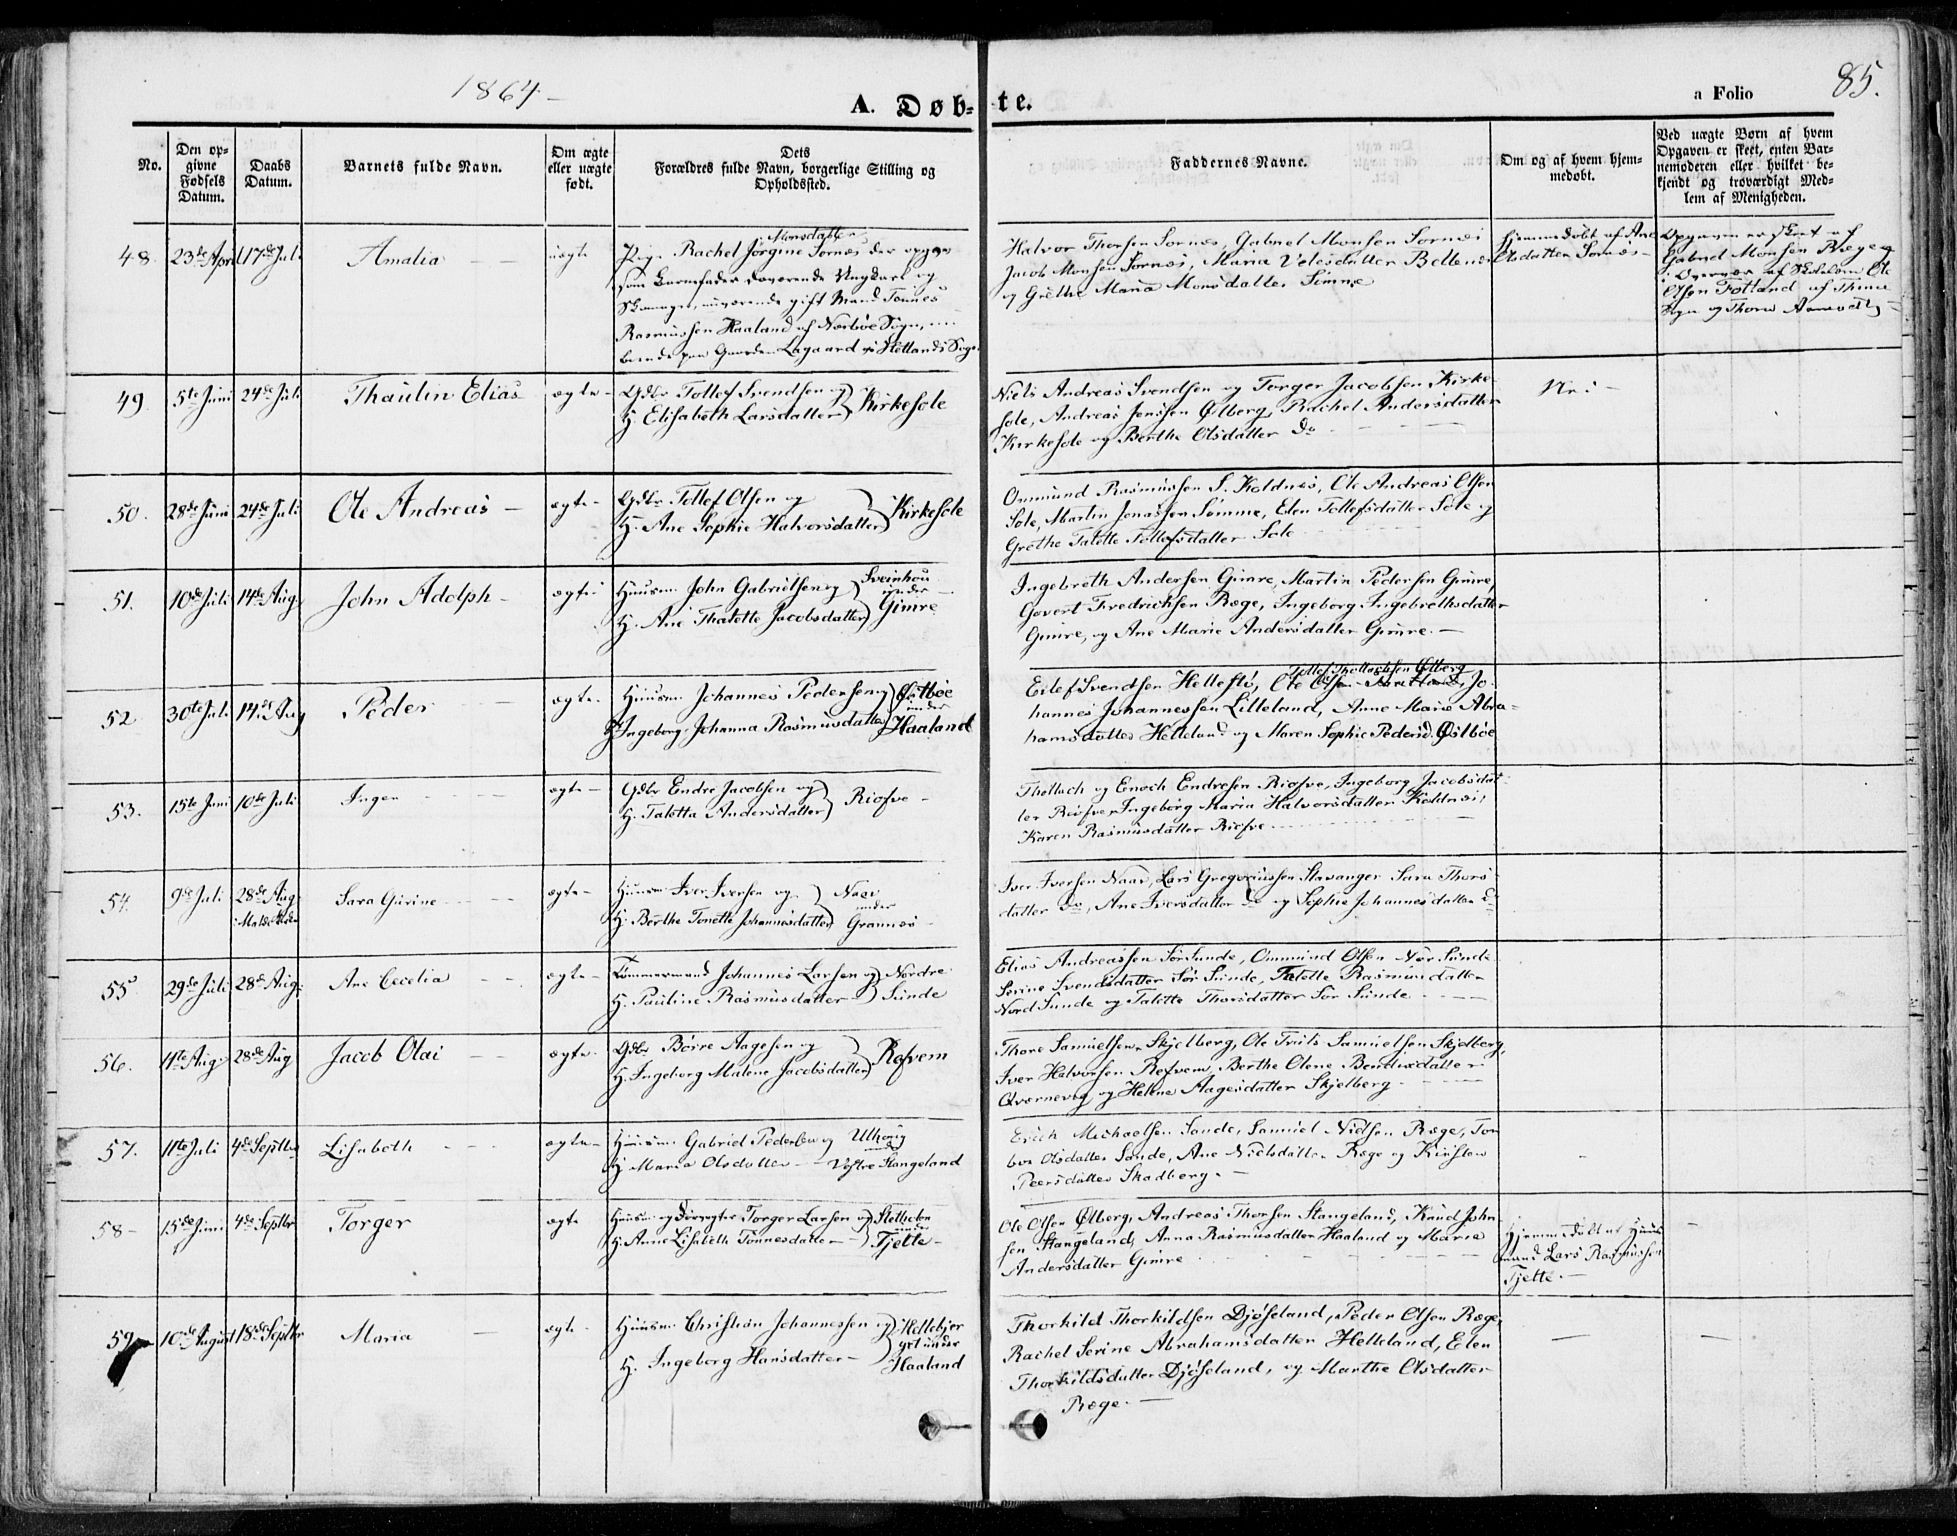 1864 -
A. Døb-
te.
a Folio
85.
No.
Den op-
givne
Fødsels
Datum.
Daabs
Datum.
Barnets fulde Navn.
Om ægte
eller uægte
født.
Dets
Forældres fulde Navn, borgerlige Stilling og
Opholdssted.
Faddernes Navne.
Om og af hvem hjem-
medøbt.
Ved uægte Børn af hvem
Opgaven er skeet, enten Bar-
nemoderen eller hvilket be-
kjendt og troværdigt Med-
lem af Menigheden.
48. 23de April 17de Juli Amalia - uægte
Monsdatter
Pige Rachel Jørgine Sørnes der opgav
som Barnefader daværende Ungkarl og
nuværende gift Mand Tønnes
Rasmussen Haaland af Nærbøe Sogn,
boende paa Gaarden Lagaard i Hetlands Sogn
Halvor Thorsen Sørnes, Gabriel Monsen Sørnes
Jacob Monsen Sørnes, Maria
og Grethe Maria Monsdatter Sømme
Hjemmedøbt af Ane
Olsdatter Sørnes -
Opgaven er skeet af
Gabriel Monsen Ræge
i Overvær af Ole
Olsen Fotland af Thime
Sogn og Thore
49 5te Juni 24de Juli Thaulin Elias ægte -
Gdbr Tollef Svendsen og
H. Elisabeth Larsdatter } Kirkesole
Niels Andreas Svendsen og Torger Jacobsen Kirke-
sole, Andreas Jensen Ølberg, Rachel Andersdatter
Kirkesole og Berthe Olsdatter do
Nei -
50. 28de Juni 24de Juli Ole Andreas - ægte -
Gdbr Tollef Olsen og
H. Ane Sophie Halvorsdatter } Kirkesole
Ommund Rasmussen S. Koldnes, Ole Andreas Olsen
Sole, Martin Jonassen Sømme, Elen Tollefsdatter Sole og
Grethe Talette Tollefsdatter Sole
51. 10de Juli 14de Aug John Adolph - ægte
Huusm. John Gabrielsen og
H. Ane Thalette Jacobsdatter }
Sveinhou
under
Gimre
Ingebreth Andersen Gimre, Martin Pedersen Gimre,
Govert Fredrichsen Ræge, Ingeborg Ingebrethsdatter
Gimre, og Ane Marie Andersdatter Gimre. -
52. 30te Juli 14de Aug Peder - ægte.
Huusm. Johannes Pedersen og
H. Ingeborg Johanna Rasmusdatter }
Østbøe
under
Haaland
Tollef Thollachsen Ølberg
Eilef Svendsen Hellestø, Ole Olsen Jo-
hannes Johannessen Lilleland, Anne Marie Abra-
hamsdatter Helleland og Maren Sophie Pedersd. Østbøe
53. 15te Juni 10de Juli Inger - ægte -
Gdbr Endre Jacobsen og
H. Taletta Andersdatter } Riosve -
Thollach og Enoch Endresen Riosve, Ingeborg Jacobsdat-
ter Riosve, Ingeborg Maria Halvorsdatter Koldnes,
Karen Rasmusdatter Riosve
54. 9de Juli 28de Aug Sara Gurine - ægte -
Huusm. Iver Iversen og
H. Berthe Tonette Johannesdatter }
Naav
under
Grannes
Iver Iversen Naav, Lars Gregoriussen Stavanger Sara Thors-
datter do, Ane Iversdatter do og Sophie Johannesdatter do
55 29de Juli 28de Aug. Ane Cecelia - ægte -
Tømmermand Johannes Larsen og
H. Pauline Rasmusdatter }
Nordre
Sunde
Elias Andreassen Sør Sunde, Ommund Olsen Nør Sunde
Serine Svendsdatter Sør Sunde, Talette Rasmusdatter
Nord Sunde og Talette Thorsdatter Sør Sunde
56. 11te Aug 28de Aug Jacob Olai - ægte.
Gdbr Børre Aagesen og
H. Ingeborg Malene Jacobsdatter } Røsvem
Thore Samuelsen Skjelberg, Ole Truls Samuelsen Skjelberg,
Iver Halvorsen Røsvem, Berthe Olene Bendixdatter
Qværnevig og Helene Aagesdatter Skjelberg
57. 11te Juli 4de Septbr Lisabeth - ægte -
Huusm. Gabriel Pedersen og
H. Maria Olsdatter -
Uthoug
under
Vestre Stangeland
Erich Michaelsen Sande, Samuel Nielsen Ræge, Tor-
bor Olsdatter Sande, Ane Nielsdatter Ræge og Kirsten
Peersdatter Skadberg. -
58 - 15de Juni 4de Septbr Torger ægte
Huusm. og Torger Larsen og
H. Anne Lisabeth Tønnesdatter -
under
Tjelte -
Ole Olsen Ølberg, Andreas Thorsen Stangeland, Knud John-
sen Stangeland, Anna Rasmusdatter Haaland og Marie
Andersdatter Gimre
Hjemmedøbt af Huus-
mand Lars Rasmussen
Tjelte. -
59 10de August 18de Septbr Maria - ægte -
Huusm. Christian Johannessen og
H. Ingeborg Hansdatter -
under
Haaland
Thorkild Thorkildsen Djøseland, Peder Olsen Ræge,
Rachel Serine Abrahamsdatter Helleland, Elen
Thorkildsdatter Djøseland, og Marthe Olsdatter
Ræge. -